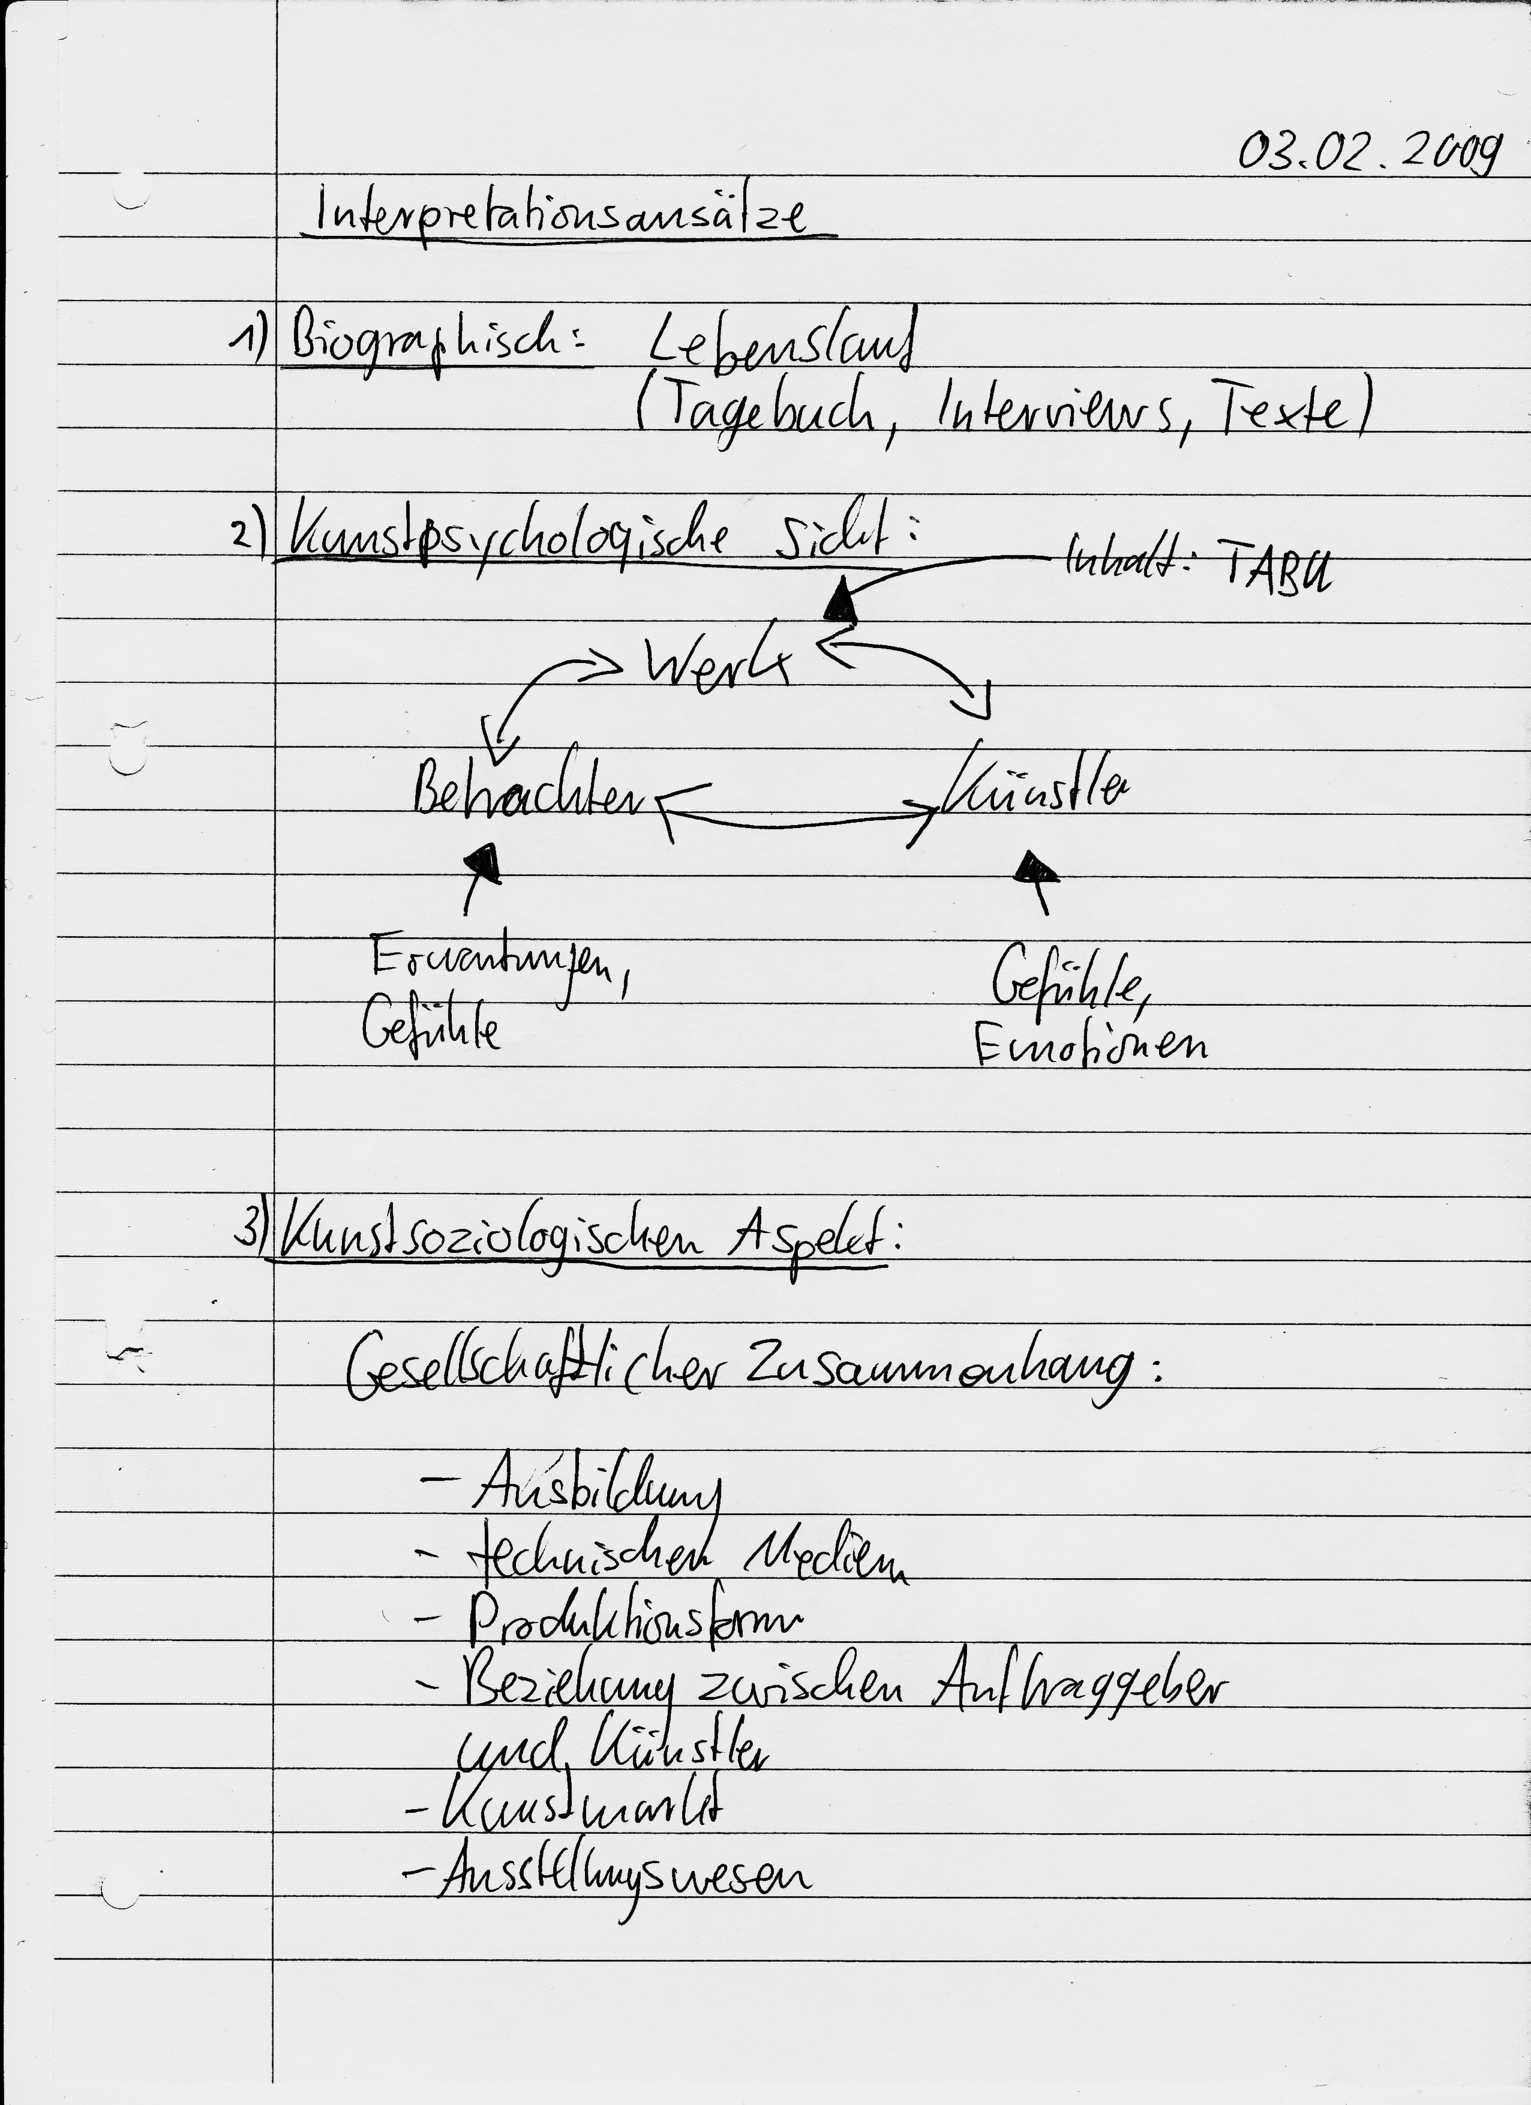 03.02.2009
Interpretationsansätze
1) Biographisch: Lebenslauf
(Tagebuch, Interviews, Texte)
2) Kunstpsychologische Sicht:
Inhalt: TABU
Werk
Betrachter Künstler
Erwartungen,
Gefühle
Gefühle,
Emotionen
3) Kunstsoziologischen Aspekt:
Gesellschaftlicher Zusammenhang:
- Ausbildung
- technischen Medien
- Produktionsform
- Beziehung zwischen Auftraggeber
und Künstler
- Kunstmarkt
- Ausstellungswesen